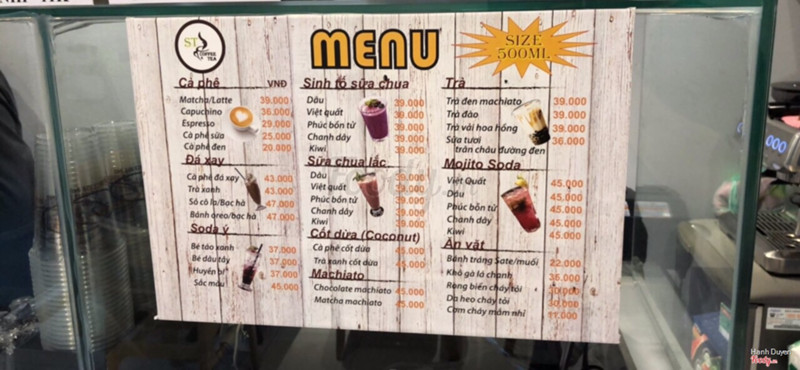 ST
COFFEE
TEA
MENU
SIZE
500ML
Cà phê VNĐ
Matcha/Latte 39.000
Capuchino 36.000
Espresso 29.000
Cà phê sữa 25.000
Cà phê đen 20.000
Đá xay
Cà phê đá xay 43.000
Trà xanh 43.000
Sô cô la/Bạc hà 47.000
Bánh oreo/bạc hà 47.000
Soda ý
Bé táo xanh 37.000
Bé dâu tây 37.000
Huyền bí 37.000
Sắc màu 45.000
Sinh tố sữa chua
Dâu 39.000
Việt quất 39.000
Phúc bồn tử 39.000
Chanh dây 39.000
Kiwi 39.000
Sữa chua lắc
Dâu 39.000
Việt quất 39.000
Phúc bồn tử 39.000
Chanh dây 39.000
Kiwi 39.000
Cốt dừa (Coconut)
Cà phê cốt dừa 45.000
Trà xanh cốt dừa 45.000
Machiato
Chocolate machiato 45.000
Matcha machiato 45.000
Trà
Trà đen machiato 39.000
Trà đào 39.000
Trà vải hoa hồng 39.000
Sữa tươi 36.000
trân châu đường đen
Mojito Soda
Việt Quất 45.000
Dâu 45.000
Phúc bồn tử 45.000
Chanh dây 45.000
Kiwi 45.000
Ăn vặt
Bánh tráng Sate/muối 22.000
Khô gà lá chanh 36.000
Rong biển cháy tỏi 30.000
Da heo cháy tỏi 30.000
Cơm cháy mắm nhỉ 11.000
Hanh Duyen